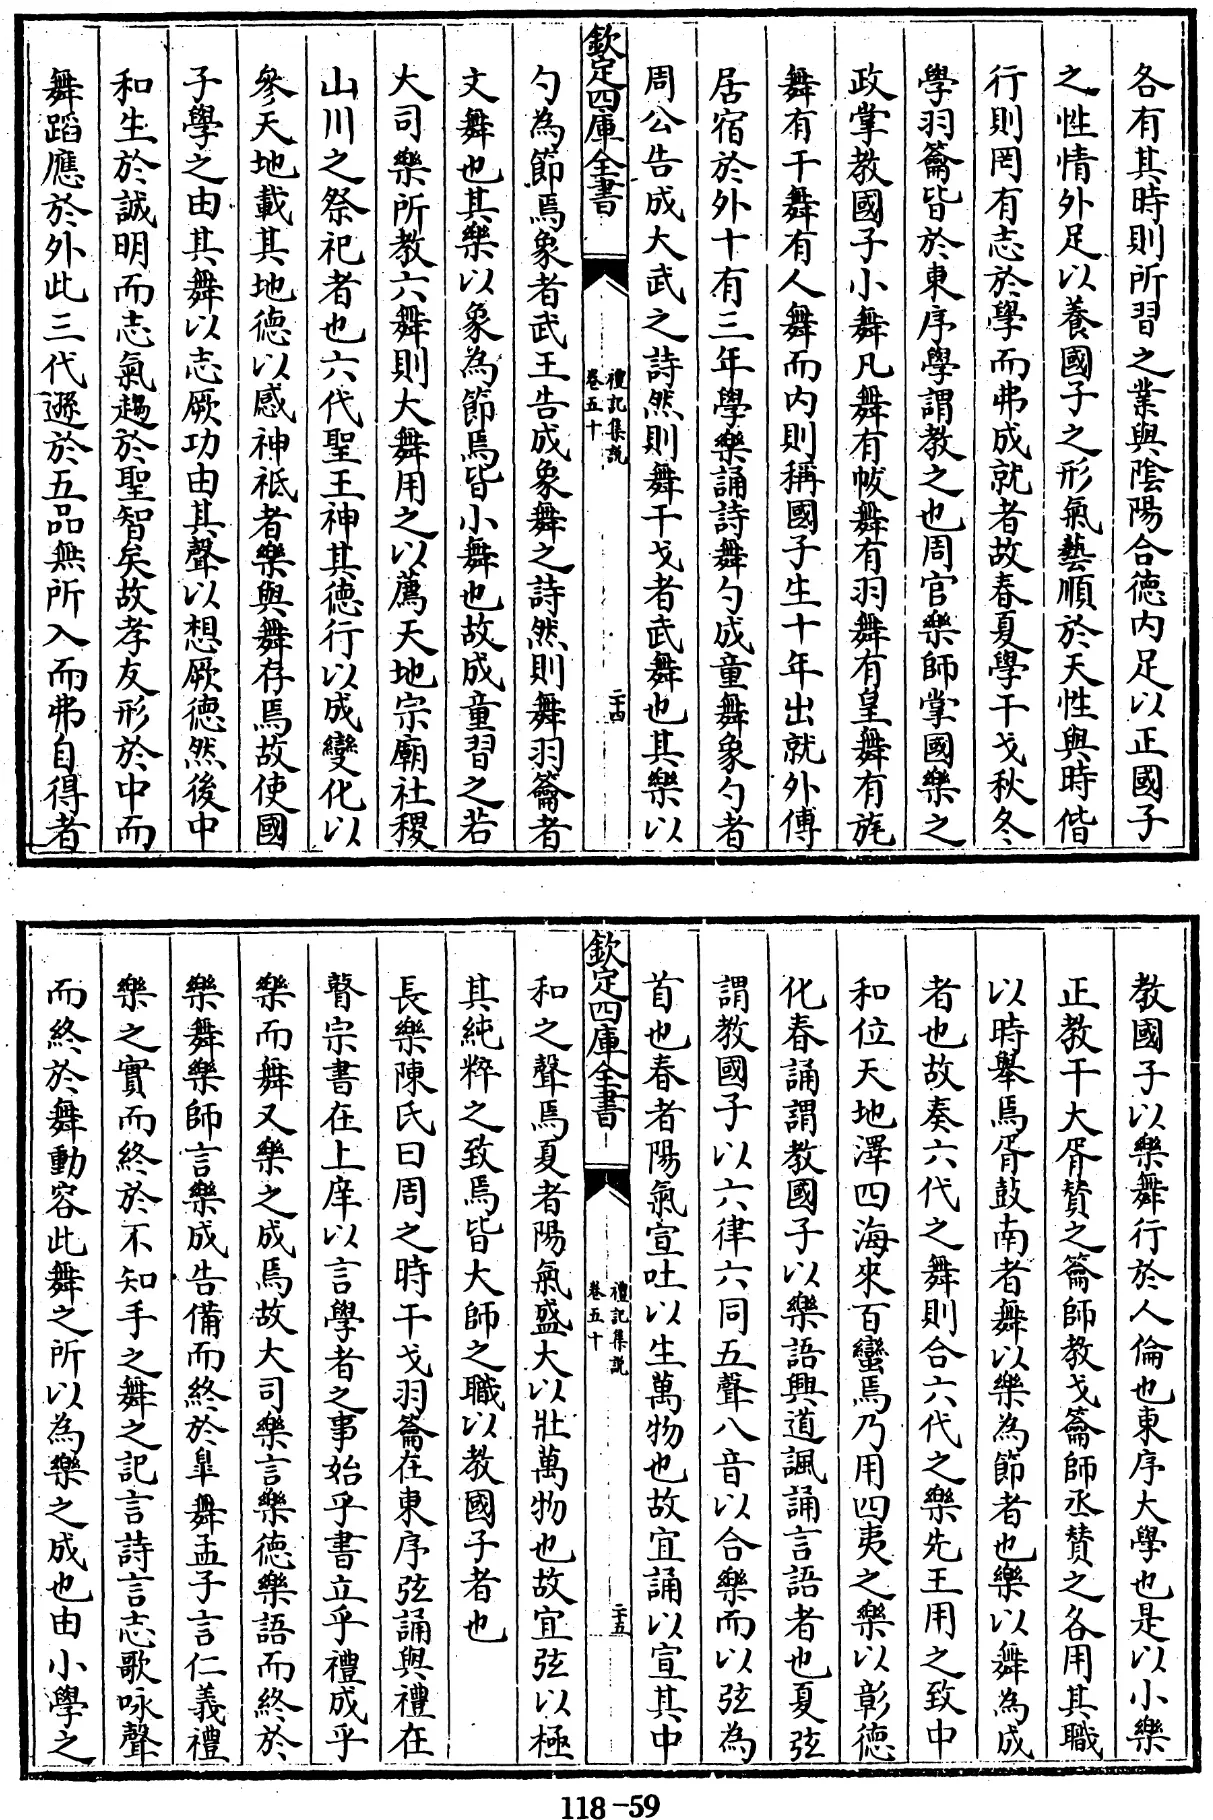 各有其時則所習之業與陰陽合徳内足以正國子
之性情外足以養國子之形氣藝順於天性與時偕
行則罔有志於學而弗成就者故春夏學干戈秋冬
學羽籥皆於東序學謂教之也周官樂師掌國樂之
政掌教國子小舞凡舞有帗舞有羽舞有皇舞有旄
舞有干舞有人舞而内則稱國子生十年出就外傅
居宿於外十有三年學樂誦詩舞勺成童舞象勺者
周公告成大武之詩然則舞干戈者武舞也其樂以
欽定四庫全書
禮記集説
卷五十
二十四
勺為節焉象者武王告成象舞之詩然則舞羽籥者
文舞也其樂以象為節焉皆小舞也故成童習之若
大司樂所教六舞則大舞用之以薦天地宗廟社稷
山川之祭祀者也六代聖王神其徳行以成變化以
參天地載其地徳以感神祇者樂與舞存焉故使國
子學之由其舞以志厥功由其聲以想厥徳然後中
和生於誠明而志氣趨於聖智矣故孝友形於中而
舞蹈應於外此三代遜於五品無所入而弗自得者
教國子以樂舞行於人倫也東序大學也是以小樂
正教干大胥賛之籥師教戈籥師丞賛之各用其職
以時舉焉胥鼓南者舞以樂為節者也樂以舞為成
者也故奏六代之舞則合六代之樂先王用之致中
和位天地澤四海來百蠻焉乃用四夷之樂以彰徳
化春誦謂教國子以樂語興道諷誦言語者也夏弦
謂教國子以六律六同五聲八音以合樂而以弦為
首也春者陽氣宣吐以生萬物也故宜誦以宣其中
欽定四庫全書
禮記集説
卷五十
二十五
和之聲焉夏者陽氣盛大以壯萬物也故宜弦以極
其純粹之致焉皆大師之職以教國子者也
長樂陳氏曰周之時干戈羽籥在東序弦誦與禮在
瞽宗書在上庠以言學者之事始乎書立乎禮成乎
樂而舞又樂之成焉故大司樂言樂徳樂語而終於
樂舞樂師言樂成告備而終於臯舞孟子言仁義禮
樂之實而終於不知手之舞之記言詩言志歌咏聲
而終於舞動容此舞之所以為樂之成也由小學之
118-59